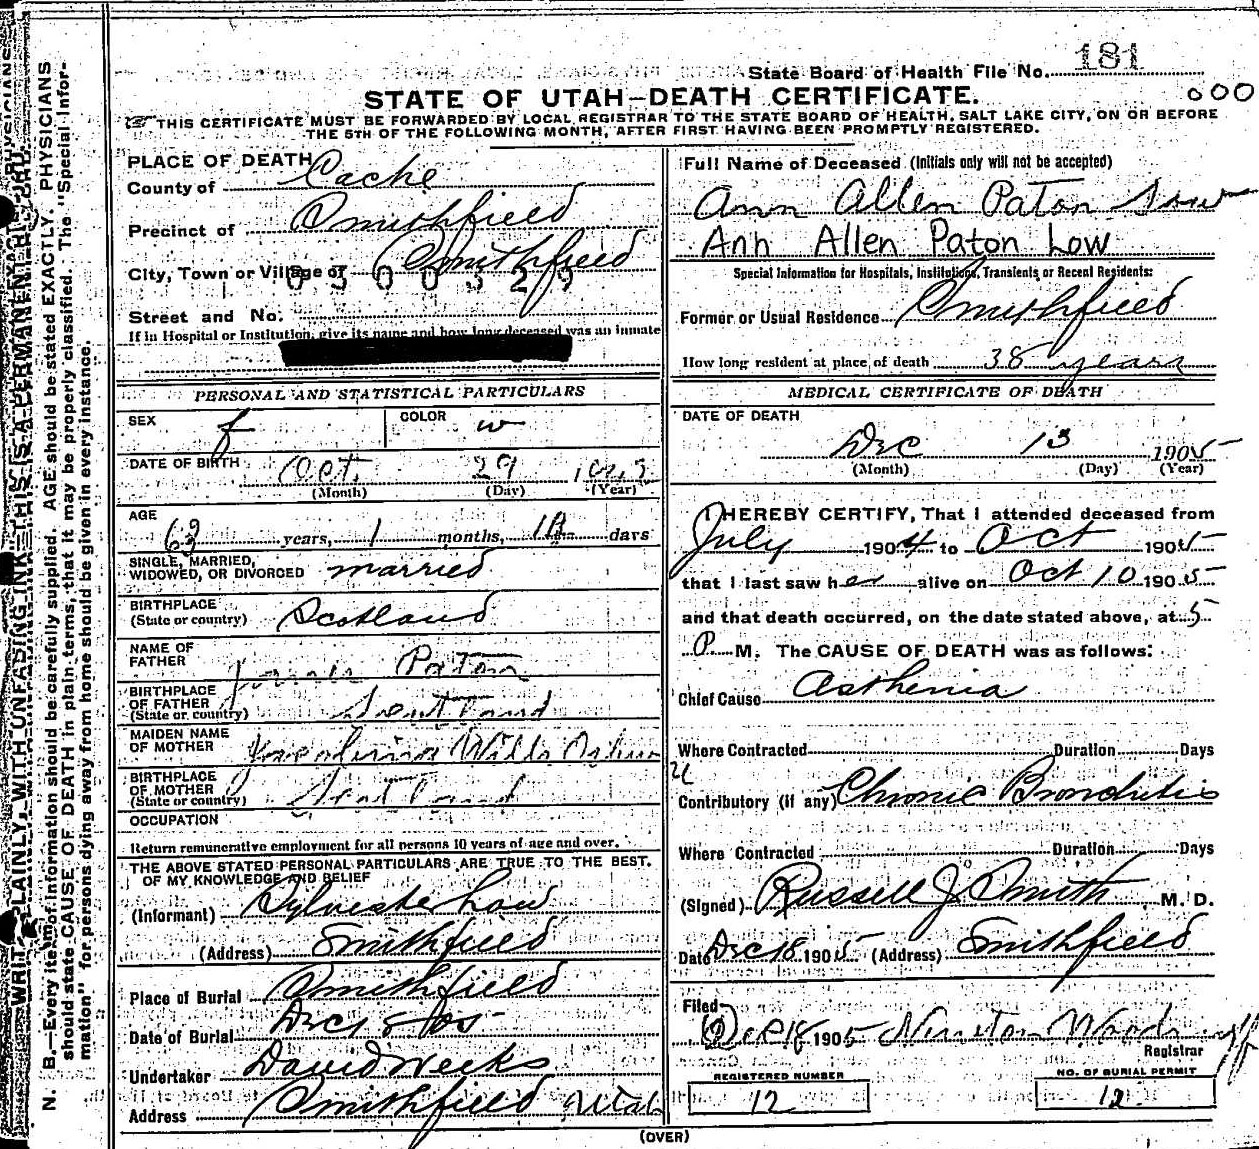 State Board of Health File No. 181
000
STATE OF UTAH—DEATH CERTIFICATE.
THIS CERTIFICATE MUST BE FORWARDED BY LOCAL REGISTRAR TO THE STATE BOARD OF HEALTH, SALT LAKE CITY, ON OR BEFORE
THE 5TH OF THE FOLLOWING MONTH, AFTER FIRST HAVING BEEN PROMPTLY REGISTERED.
PLACE OF DEATH
County of Cache
Precinct of Smithfield
City, Town or Village of Smithfield
0300529
Street and No.
If in Hospital or Institution, give its name and how long deceased was an inmate
PERSONAL AND STATISTICAL PARTICULARS
SEX f COLOR w
DATE OF BIRTH Oct. 29
(Month) (Day) (Year)
AGE
63 years, 1 months, days
SINGLE, MARRIED,
WIDOWED, OR DIVORCED married
BIRTHPLACE
(State or country) Scotland
NAME OF
FATHER Paton
BIRTHPLACE
OF FATHER
(State or country) Scotland
MAIDEN NAME
OF MOTHER
BIRTHPLACE
OF MOTHER
(State or country) Scotland
OCCUPATION
Return remunerative employment for all persons 10 years of age and over.
THE ABOVE STATED PERSONAL PARTICULARS ARE TRUE TO THE BEST
OF MY KNOWLEDGE AND BELIEF
(Informant) Sylvester Low
(Address) Smithfield
Place of Burial Smithfield
Date of Burial Dec
Undertaker David Weeks
Address Smithfield Utah
Full Name of Deceased (Initials only will not be accepted)
Ann Allen Paton Low
Ann Allen Paton Low
Special Information for Hospitals, Institutions, Transients or Recent Residents:
Former or Usual Residence Smithfield
How long resident at place of death 38 years
MEDICAL CERTIFICATE OF DEATH
DATE OF DEATH
Dec 13 1905
(Month) (Day) (Year)
I HEREBY CERTIFY, That I attended deceased from
July 1904 to Oct 1905
that I last saw her alive on Oct 10 1905
and that death occurred, on the date stated above, at 5
P M. The CAUSE OF DEATH was as follows:
Chief Cause Asthenia
Where Contracted Duration Days
Contributory (if any) Chronic Bronchitis
Where Contracted Duration Days
(Signed) Russell J Smith M. D.
Date Dec 18 1905 (Address) Smithfield
Filed
Dec 18 1905 Woods
Registrar
REGISTERED NUMBER
12
NO. OF BURIAL PERMIT
12
(OVER)
WRITE PLAINLY, WITH UNFADING INK—THIS IS A PERMANENT RECORD.
N. B.—Every item of information should be carefully supplied. AGE should be stated EXACTLY. PHYSICIANS
should state CAUSE OF DEATH in plain terms, that it may be properly classified. The "Special Infor-
mation" for persons dying away from home should be given in every instance.